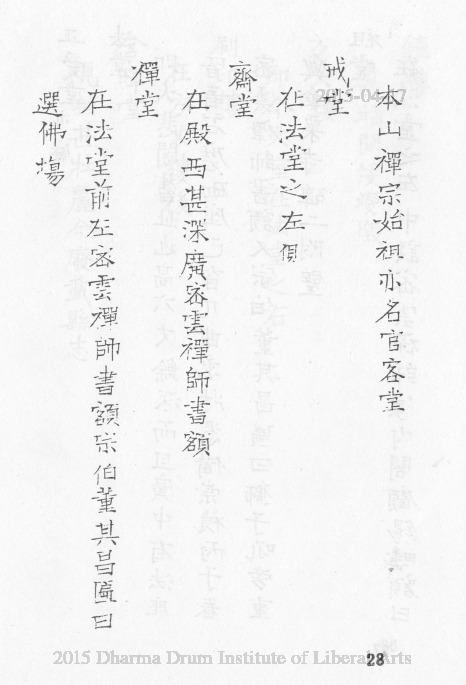 本山禪宗始祖亦名官客堂
戒堂
在法堂之左側
齋堂
在殿西甚深廣密雲禪師書額
禪堂
在法堂前左密雲禪師書額宗伯董其昌匾曰
選佛場
28
2015 Dharma Drum Institute of Liberal Arts